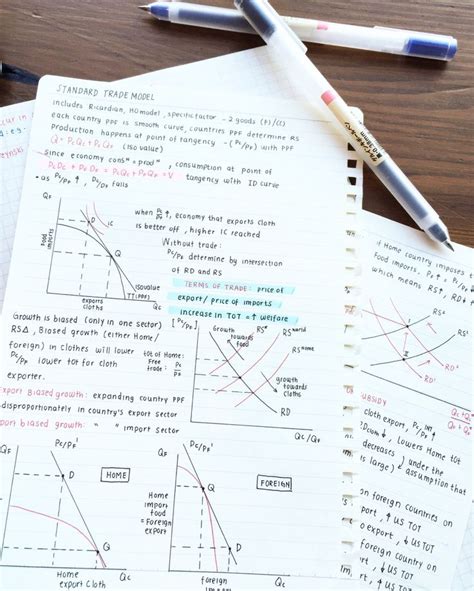 STANDARD TRADE MODEL
includes Ricardian, HOmodel, specific factor - 2 goods (F)/(C)
each country PPF is smooth curve, countries PPF determine RS
Production happens at point of tangency - (Pc/PF) with PPF
(iso value)
since economy cons = prod , consumption at point of
tangency with ID curve
- as Pc/PF ↑ , Dc/DF falls
when Pc/PF ↑, economy that exports cloth
is better off, higher IC reached
Without trade:
Pc/PF determine by intersection
of RD and RS
TERMS OF TRADE: price of
export/ price of imports
increase in TOT = ↑ welfare
QF
IC
D
Q
food
imports
exports
cloth
isovalue
TT(PPF)
QC
Growth is biased (only in one sector)
RS△, Biased growth (either Home/
foreign) in clothes will lower
Pc/PF lower tot for cloth
exporter.
tot of
Home:
free
trade:
Export Biased growth: expanding country PPF
disproportionately in country's export sector
import biased growth: " " import sector
[Pc/PF]
Growth
towards
food
RS'
RS world
RS Home
growth
towards
cloths
RD
Qc/QF
QF
Pc/PF'
HOME
D
Q
Home
export Cloth
Qc
Home
import
food
= Foreign
export
QF
Pc/PF'
FOREIGN
Q
D
foreign
Qc
if Home country imposes
Food imports,
which means RS↑,
RS'
RS
1
RD
RD'
SUBSIDY
cloth export,
Lowers Home tot
decreases (under the
is large) assumption that
on foreign countries on
export, ↑ US TOT
o export, ↓ US TOT
foreign country on
ort, ↓ US TOT
0.38mm